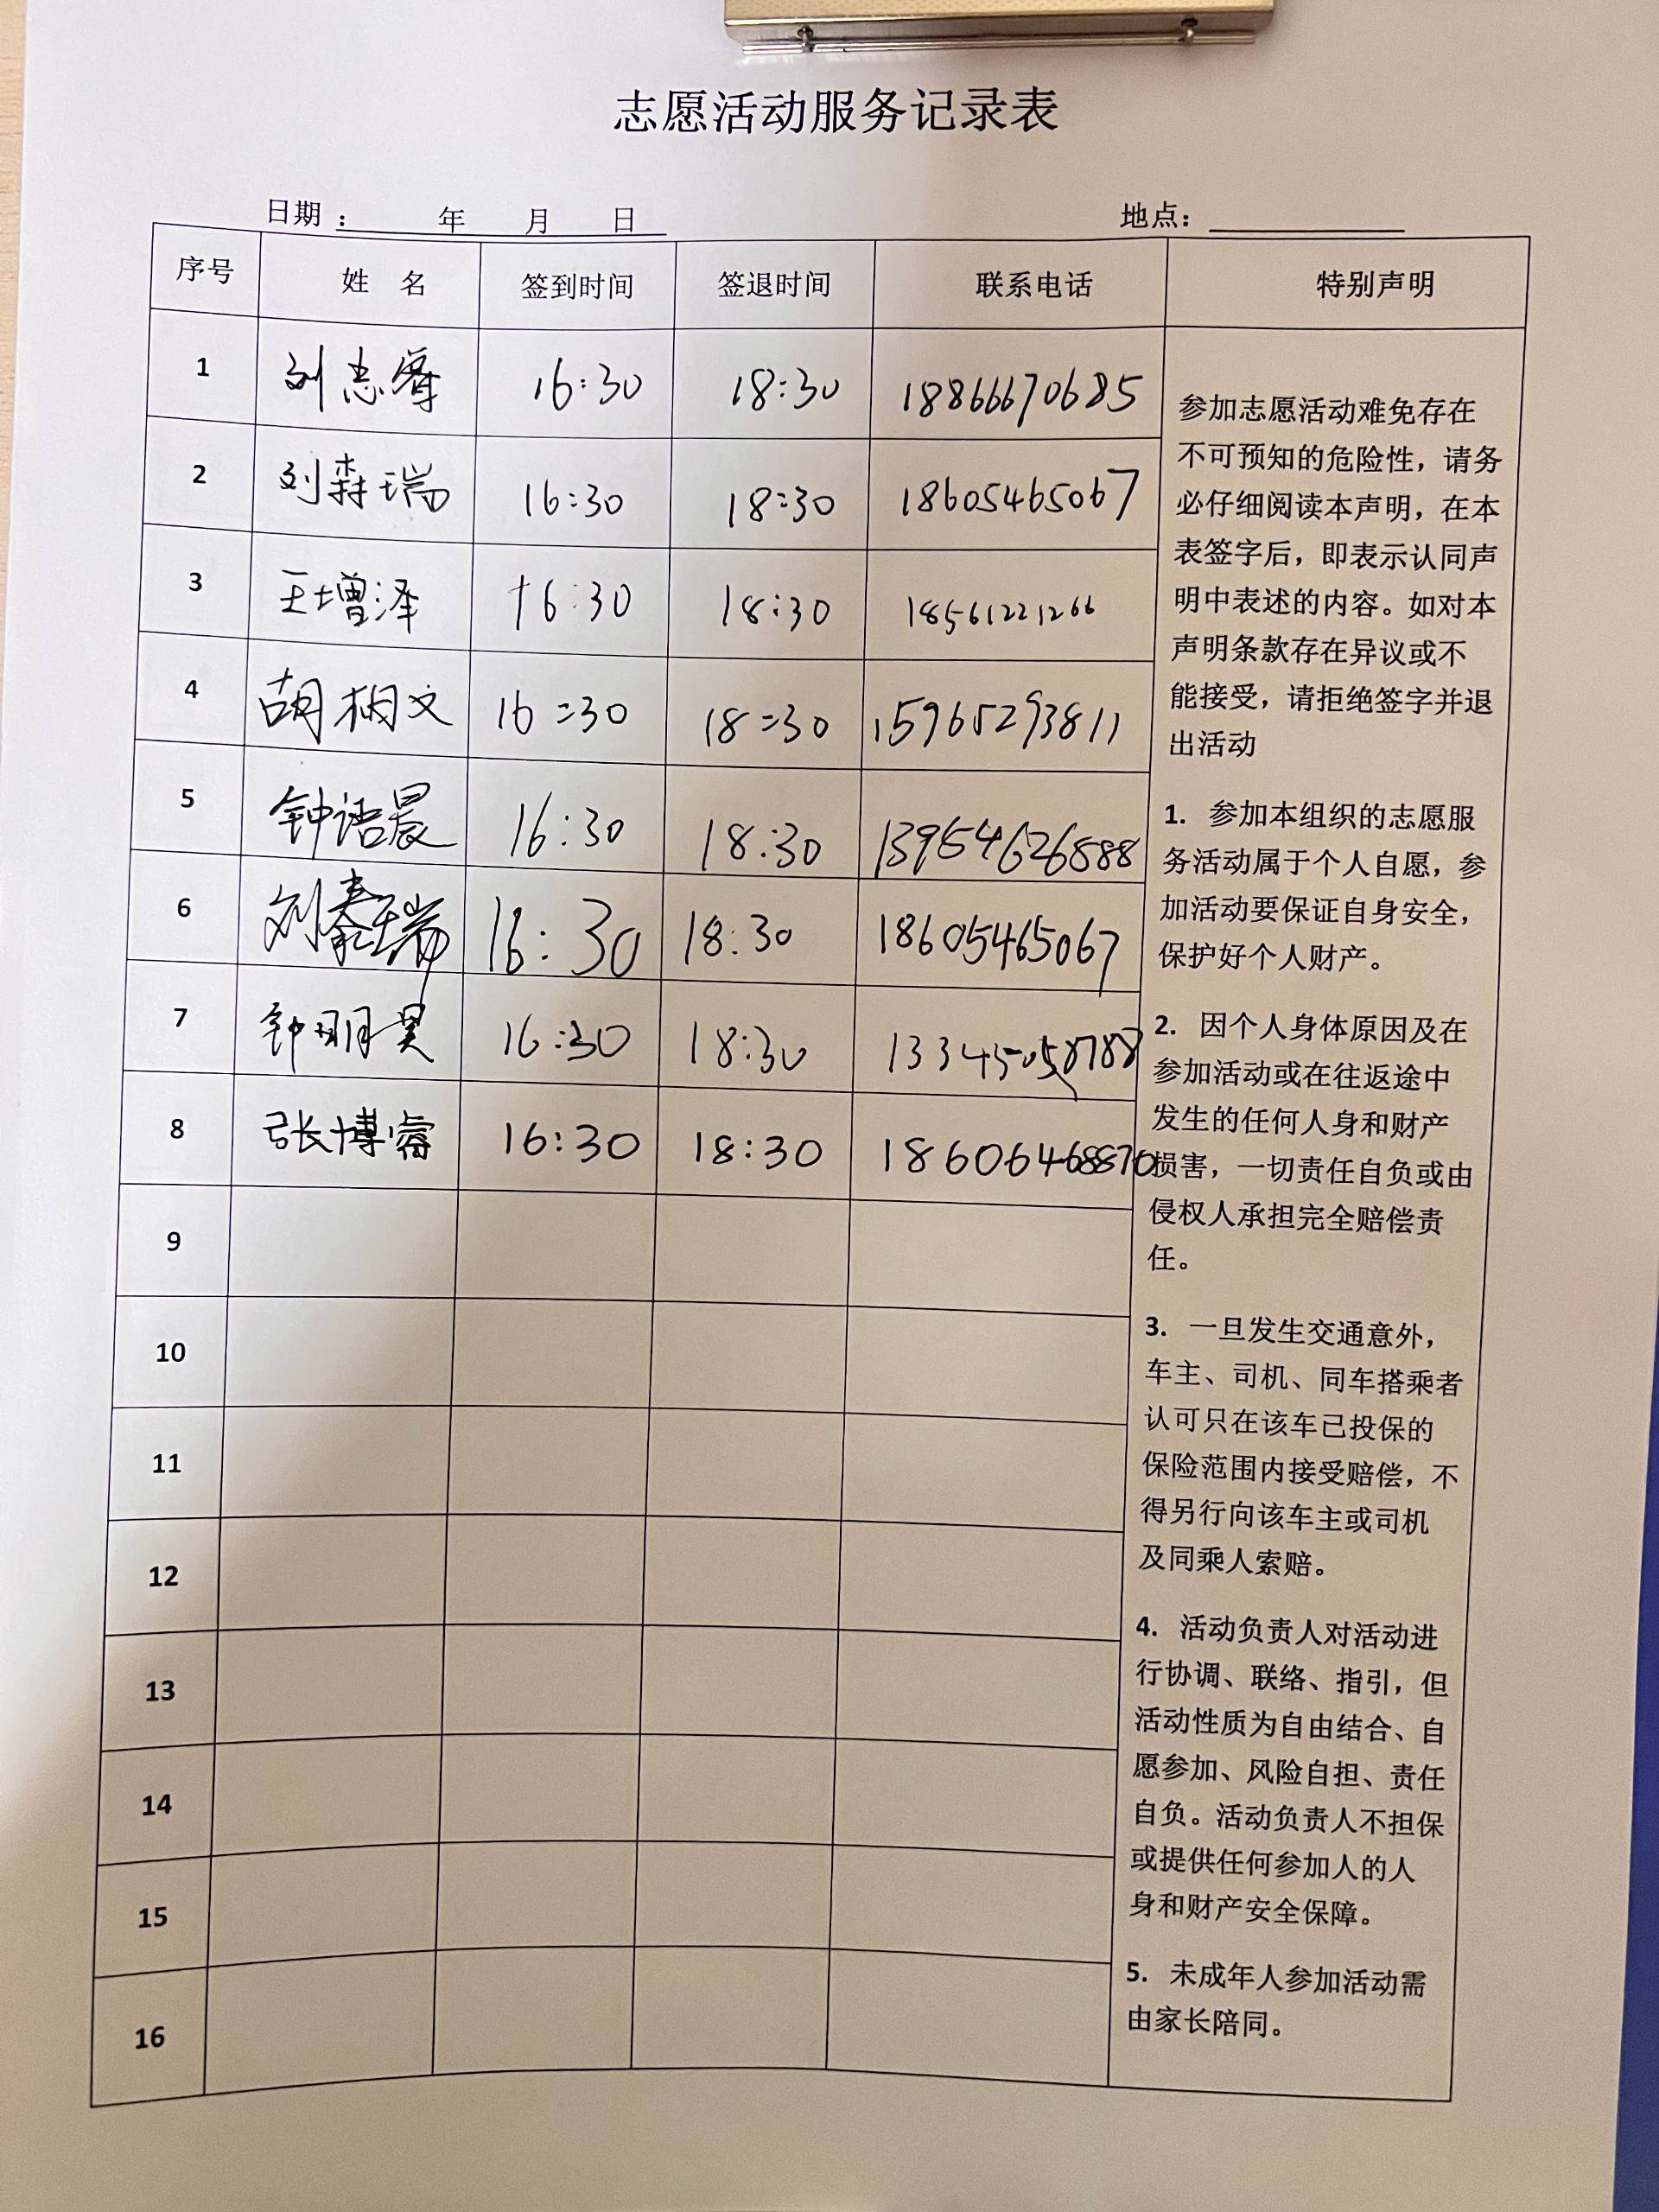 志愿活动服务记录表
日期： 年 月 日 地点：
序号 姓 名 签到时间 签退时间 联系电话 特别声明
1 刘志 16:30 18:30 18866670685
2 刘森瑞 16:30 18:30 18605465067
3 王增泽 16:30 18:30 18561221266
4 胡桐文 16:30 18:30 15965293811
5 钟语晨 16:30 18:30 13954626888
6 刘瑞 16:30 18:30 18605465067
7 钟明昊 16:30 18:30
8 张博睿 16:30 18:30 18606468870
9
10
11
12
13
14
15
16
参加志愿活动难免存在
不可预知的危险性，请务
必仔细阅读本声明，在本
表签字后，即表示认同声
明中表述的内容。如对本
声明条款存在异议或不
能接受，请拒绝签字并退
出活动
1. 参加本组织的志愿服
务活动属于个人自愿，参
加活动要保证自身安全，
保护好个人财产。
2. 因个人身体原因及在
参加活动或在往返途中
发生的任何人身和财产
损害，一切责任自负或由
侵权人承担完全赔偿责
任。
3. 一旦发生交通意外，
车主、司机、同车搭乘者
认可只在该车已投保的
保险范围内接受赔偿，不
得另行向该车主或司机
及同乘人索赔。
4. 活动负责人对活动进
行协调、联络、指引，但
活动性质为自由结合、自
愿参加、风险自担、责任
自负。活动负责人不担保
或提供任何参加人的人
身和财产安全保障。
5. 未成年人参加活动需
由家长陪同。